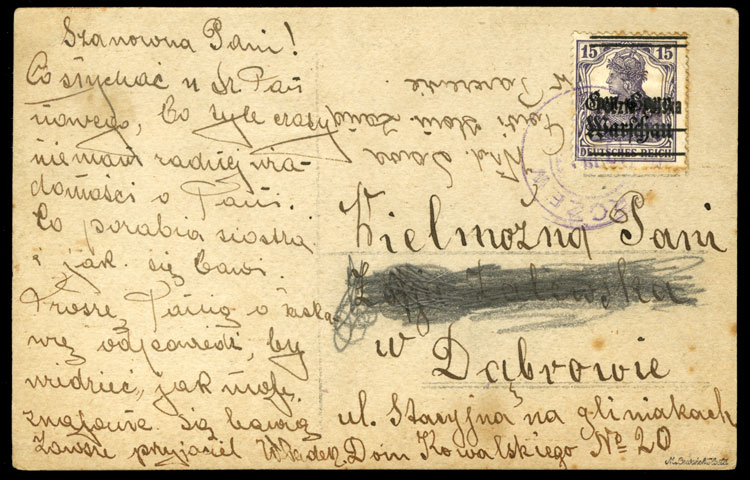 Szanowna Pani!
Co słychać u Sz Pani
nowego, Co tyle czasu
niemam żadnej wia-
domości o Pani.
Co porabia siostra
i jak się bawi.
Proszę Panią o łaska-
wię odpowiedź, by
wiedzieć, jak moje
znajome się bawią
Zawsze przyjaciel Władek.
15 15
Gen.-Gouv.
Warschau
DEUTSCHES REICH
Wielmożna Pani
w Dąbrowie
ul. Stacyjna na gliniakach
Dom Kowalskiego No 20